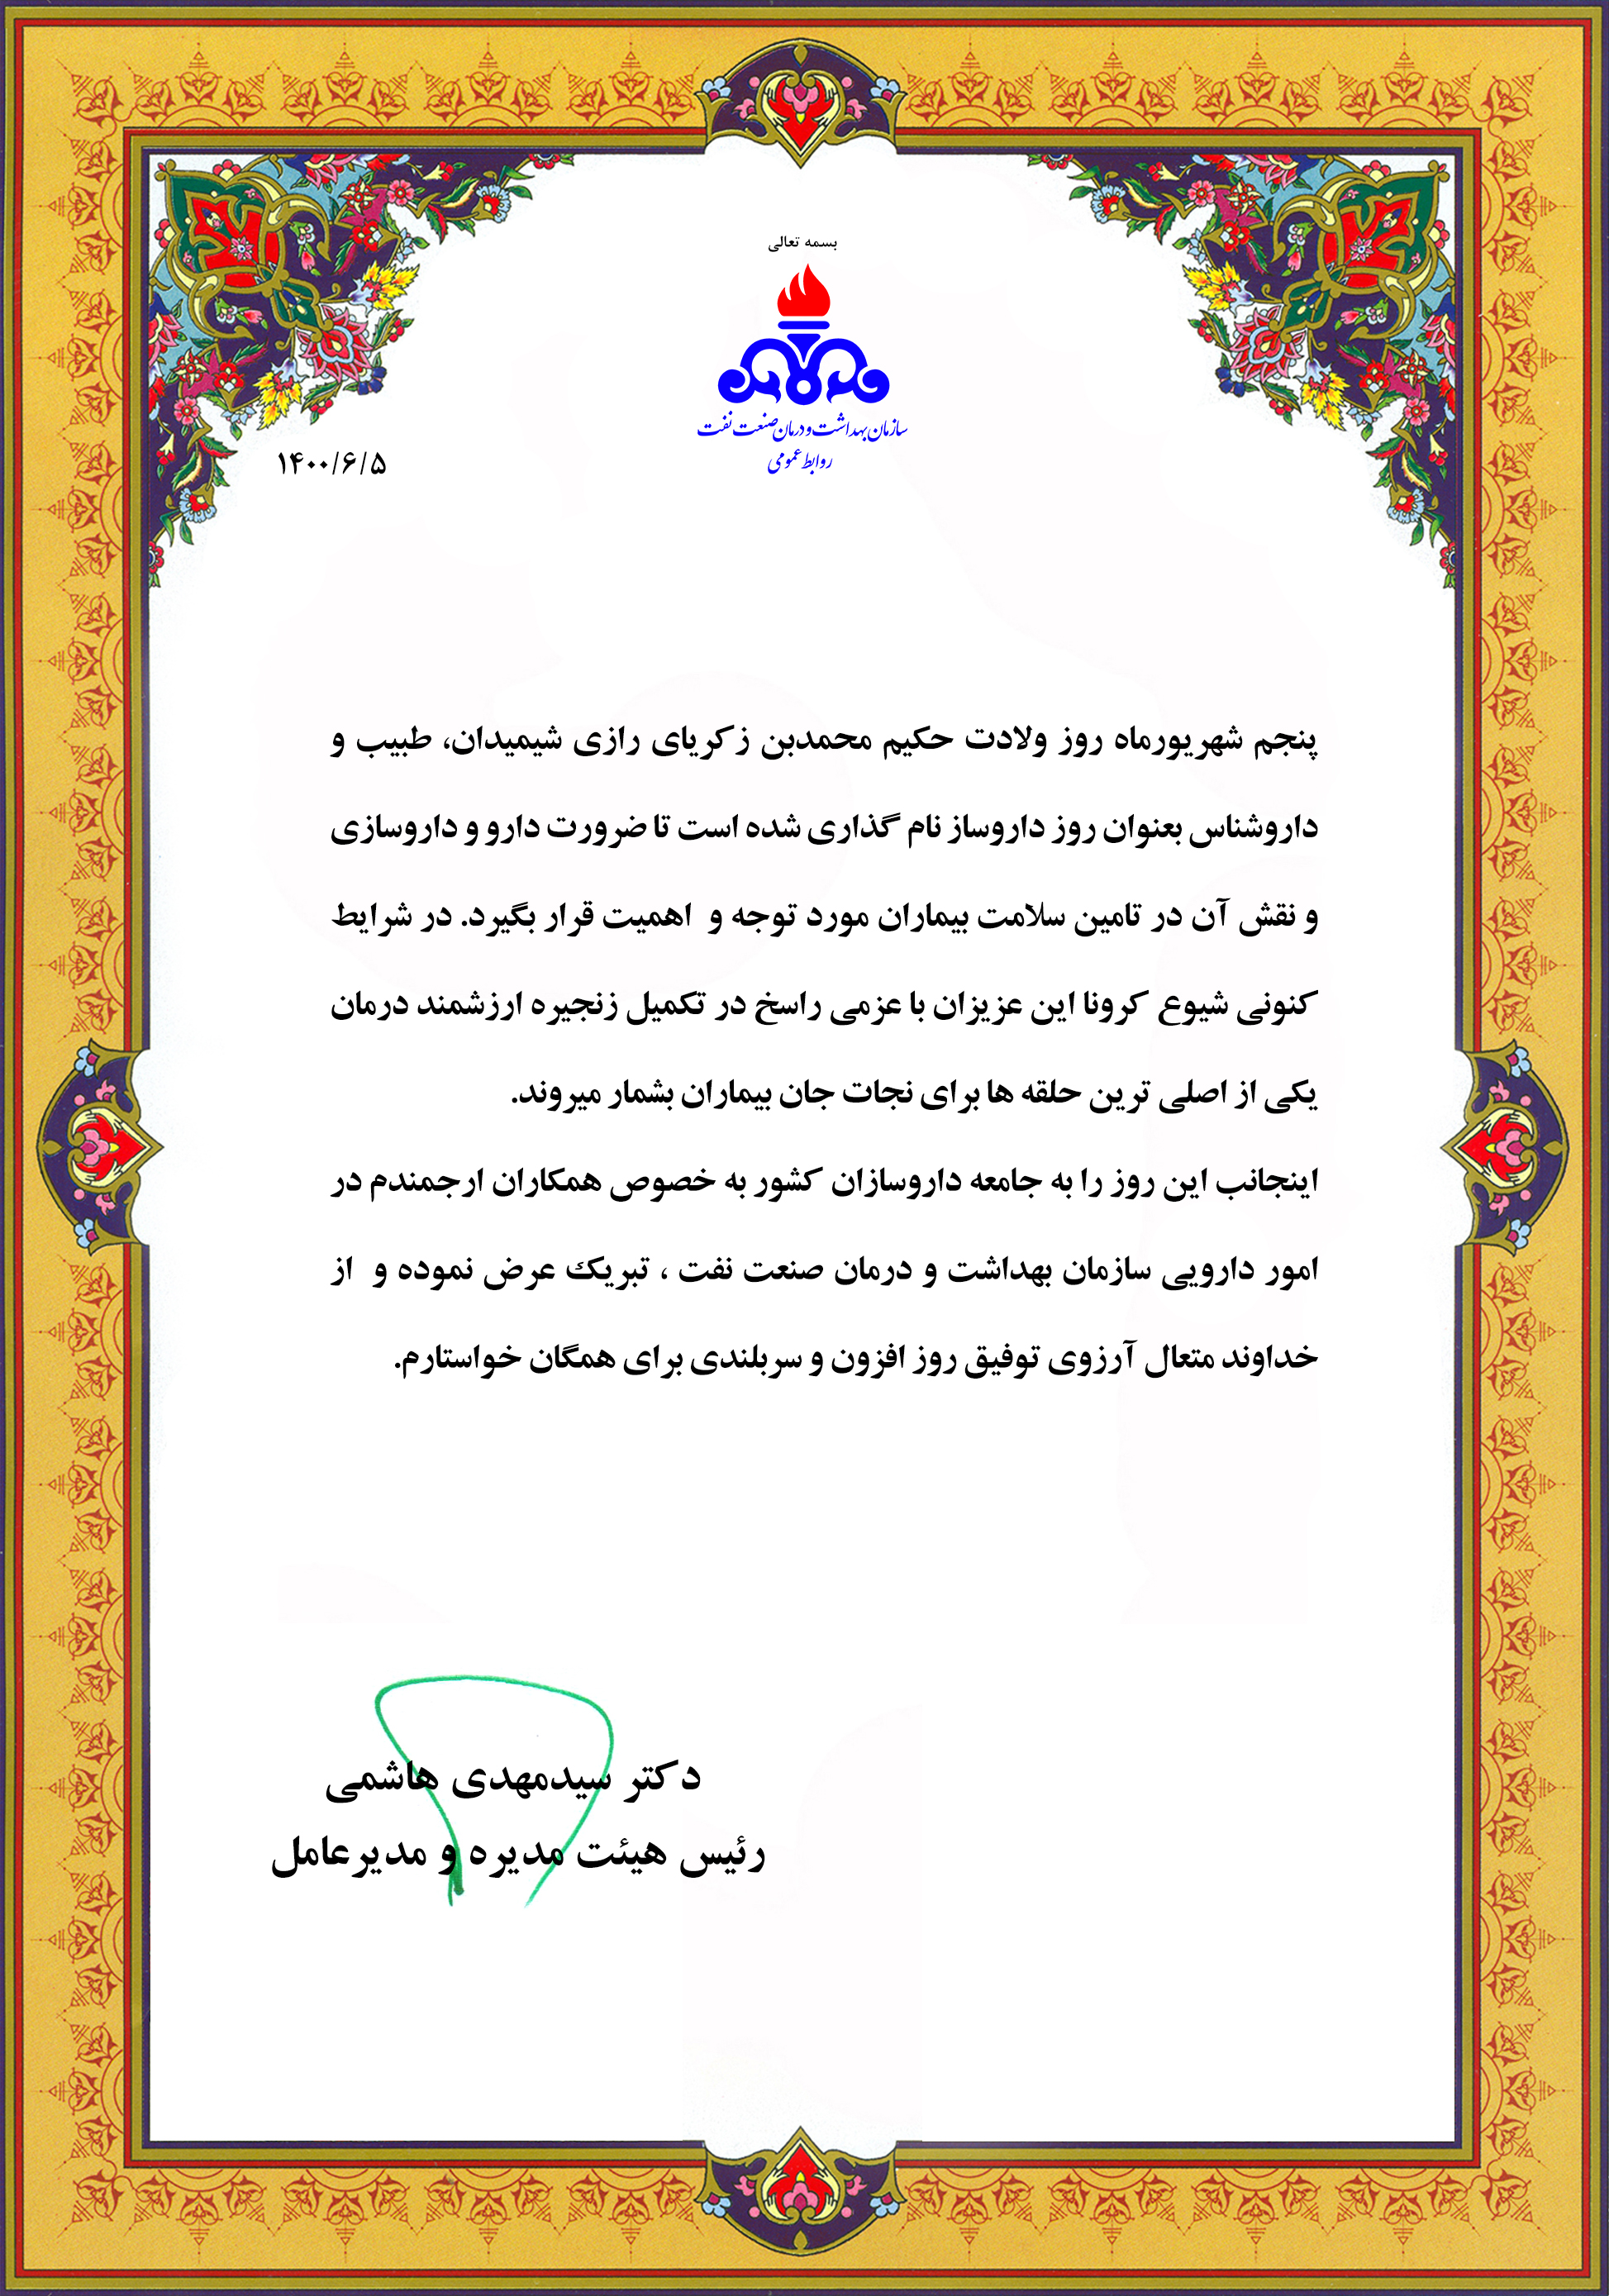 بسمه تعالی
سازمان بهداشت و درمان صنعت نفت
روابط عمومی
۱۴۰۰/۶/۵
پنجم شهریورماه روز ولادت حکیم محمدبن زکریای رازی شیمیدان، طبیب و
داروشناس بعنوان روز داروساز نام گذاری شده است تا ضرورت دارو و داروسازی
و نقش آن در تامین سلامت بیماران مورد توجه و اهمیت قرار بگیرد. در شرایط
کنونی شیوع کرونا این عزیزان با عزمی راسخ در تکمیل زنجیره ارزشمند درمان
یکی از اصلی ترین حلقه ها برای نجات جان بیماران بشمار میروند.
اینجانب این روز را به جامعه داروسازان کشور به خصوص همکاران ارجمندم در
امور دارویی سازمان بهداشت و درمان صنعت نفت ، تبریک عرض نموده و از
خداوند متعال آرزوی توفیق روز افزون و سربلندی برای همگان خواستارم.
دکتر سیدمهدی هاشمی
رئیس هیئت مدیره و مدیرعامل